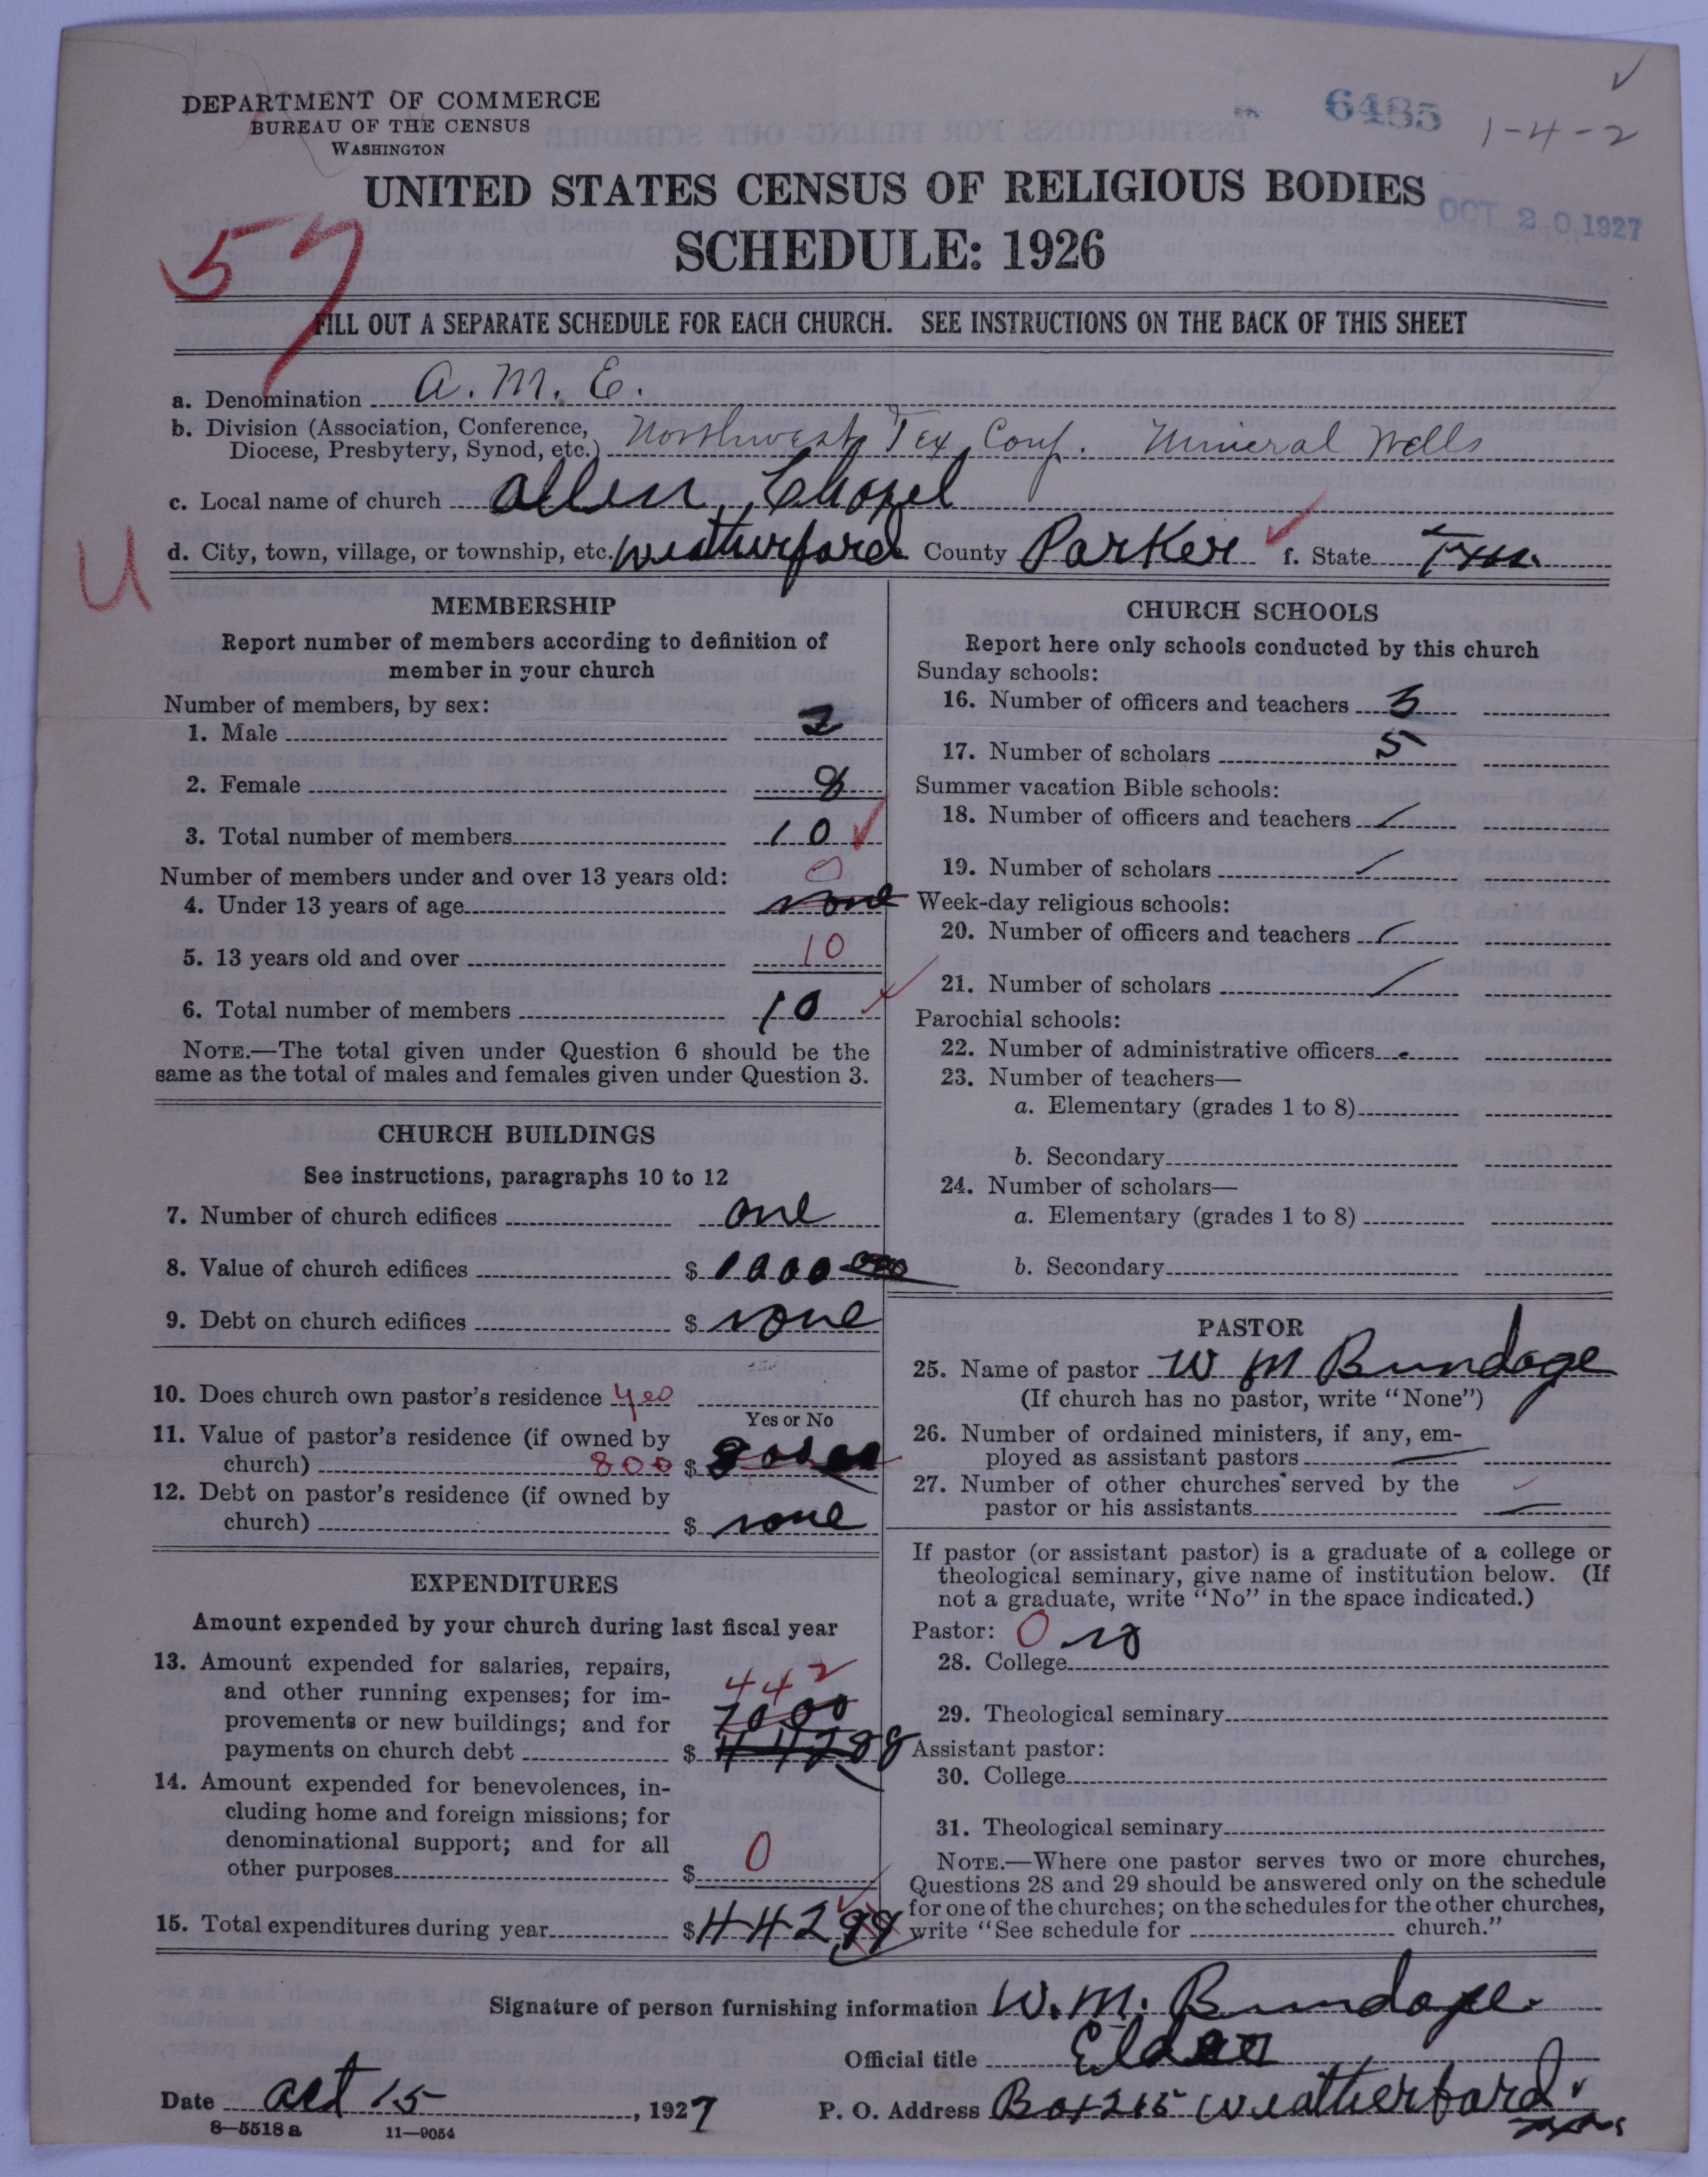 DEPARTMENT OF COMMERCE
BUREAU OF THE CENSUS
WASHINGTON
6485 1-4-2
UNITED STATES CENSUS OF RELIGIOUS BODIES
OCT 20 1927
SCHEDULE: 1926
57
FILL OUT A SEPARATE SCHEDULE FOR EACH CHURCH. SEE INSTRUCTIONS ON THE BACK OF THIS SHEET
a. Denomination A. M. E.
b. Division (Association, Conference,
Diocese, Presbytery, Synod, etc.) Northwest Tex Conf. Mineral Wells
c. Local name of church Allen Chapel
d. City, town, village, or township, etc. Weatherford County Parker f. State Tex
U
MEMBERSHIP
Report number of members according to definition of
member in your church
Number of members, by sex:
1. Male 2
2. Female 8
3. Total number of members 10
Number of members under and over 13 years old: 0
4. Under 13 years of age none
5. 13 years old and over 10
6. Total number of members 10
NOTE.—The total given under Question 6 should be the
same as the total of males and females given under Question 3.
CHURCH BUILDINGS
See instructions, paragraphs 10 to 12
7. Number of church edifices one
8. Value of church edifices $ 1000
9. Debt on church edifices $ none
10. Does church own pastor's residence yes
Yes or No
11. Value of pastor's residence (if owned by
church) 800 $
12. Debt on pastor's residence (if owned by
church) $ none
EXPENDITURES
Amount expended by your church during last fiscal year
13. Amount expended for salaries, repairs,
and other running expenses; for im-
provements or new buildings; and for
payments on church debt $ 442
14. Amount expended for benevolences, in-
cluding home and foreign missions; for
denominational support; and for all
other purposes $ 0
15. Total expenditures during year $ 442
CHURCH SCHOOLS
Report here only schools conducted by this church
Sunday schools:
16. Number of officers and teachers 3
17. Number of scholars 5
Summer vacation Bible schools:
18. Number of officers and teachers
19. Number of scholars
Week-day religious schools:
20. Number of officers and teachers
21. Number of scholars
Parochial schools:
22. Number of administrative officers
23. Number of teachers—
a. Elementary (grades 1 to 8)
b. Secondary
24. Number of scholars—
a. Elementary (grades 1 to 8)
b. Secondary
PASTOR
25. Name of pastor W M Bundage
(If church has no pastor, write "None")
26. Number of ordained ministers, if any, em-
ployed as assistant pastors
27. Number of other churches served by the
pastor or his assistants
If pastor (or assistant pastor) is a graduate of a college or
theological seminary, give name of institution below. (If
not a graduate, write "No" in the space indicated.)
Pastor: 0 no
28. College
29. Theological seminary
Assistant pastor:
30. College
31. Theological seminary
NOTE.—Where one pastor serves two or more churches,
Questions 28 and 29 should be answered only on the schedule
for one of the churches; on the schedules for the other churches,
write "See schedule for church."
Signature of person furnishing information W. M. Bundage.
Official title Elder
Date Oct 15, 1927 P. O. Address Box 215 Weatherford
8—5518 a 11—9054